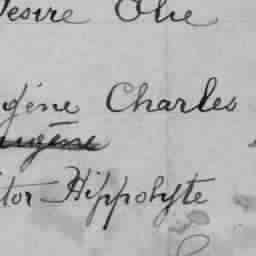 Desire Olie
gène Charles
Eugène
tor Hippolyte